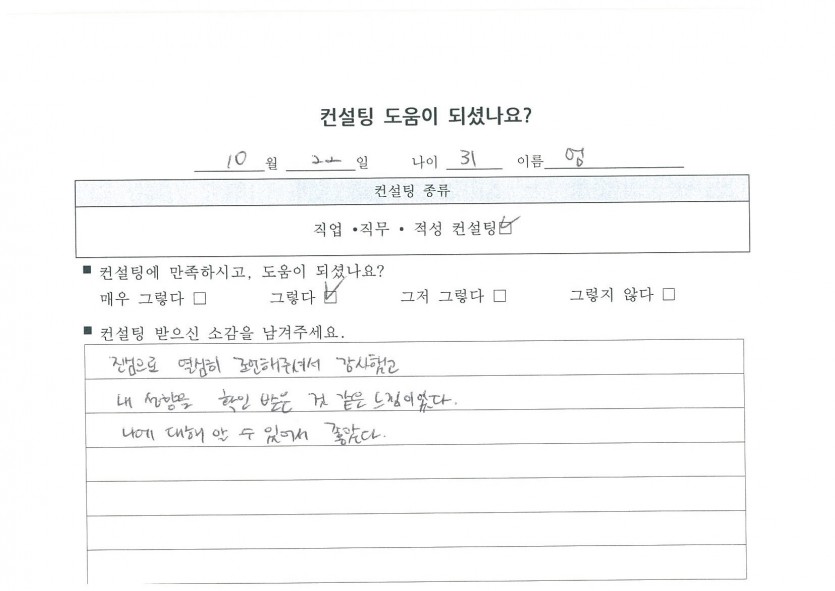 컨설팅 도움이 되셨나요?
10 월 22 일 나이 31 이름 엄
컨설팅 종류
직업 •직무 • 적성 컨설팅☑
■ 컨설팅에 만족하시고, 도움이 되셨나요?
매우 그렇다 □ 그렇다 ☑ 그저 그렇다 □ 그렇지 않다 □
■ 컨설팅 받으신 소감을 남겨주세요.
진심으로 열심히 조언해주셔서 감사했고
내 성향을 확인 받은 것 같은 느낌이었다.
나에 대해 알 수 있어서 좋았다.